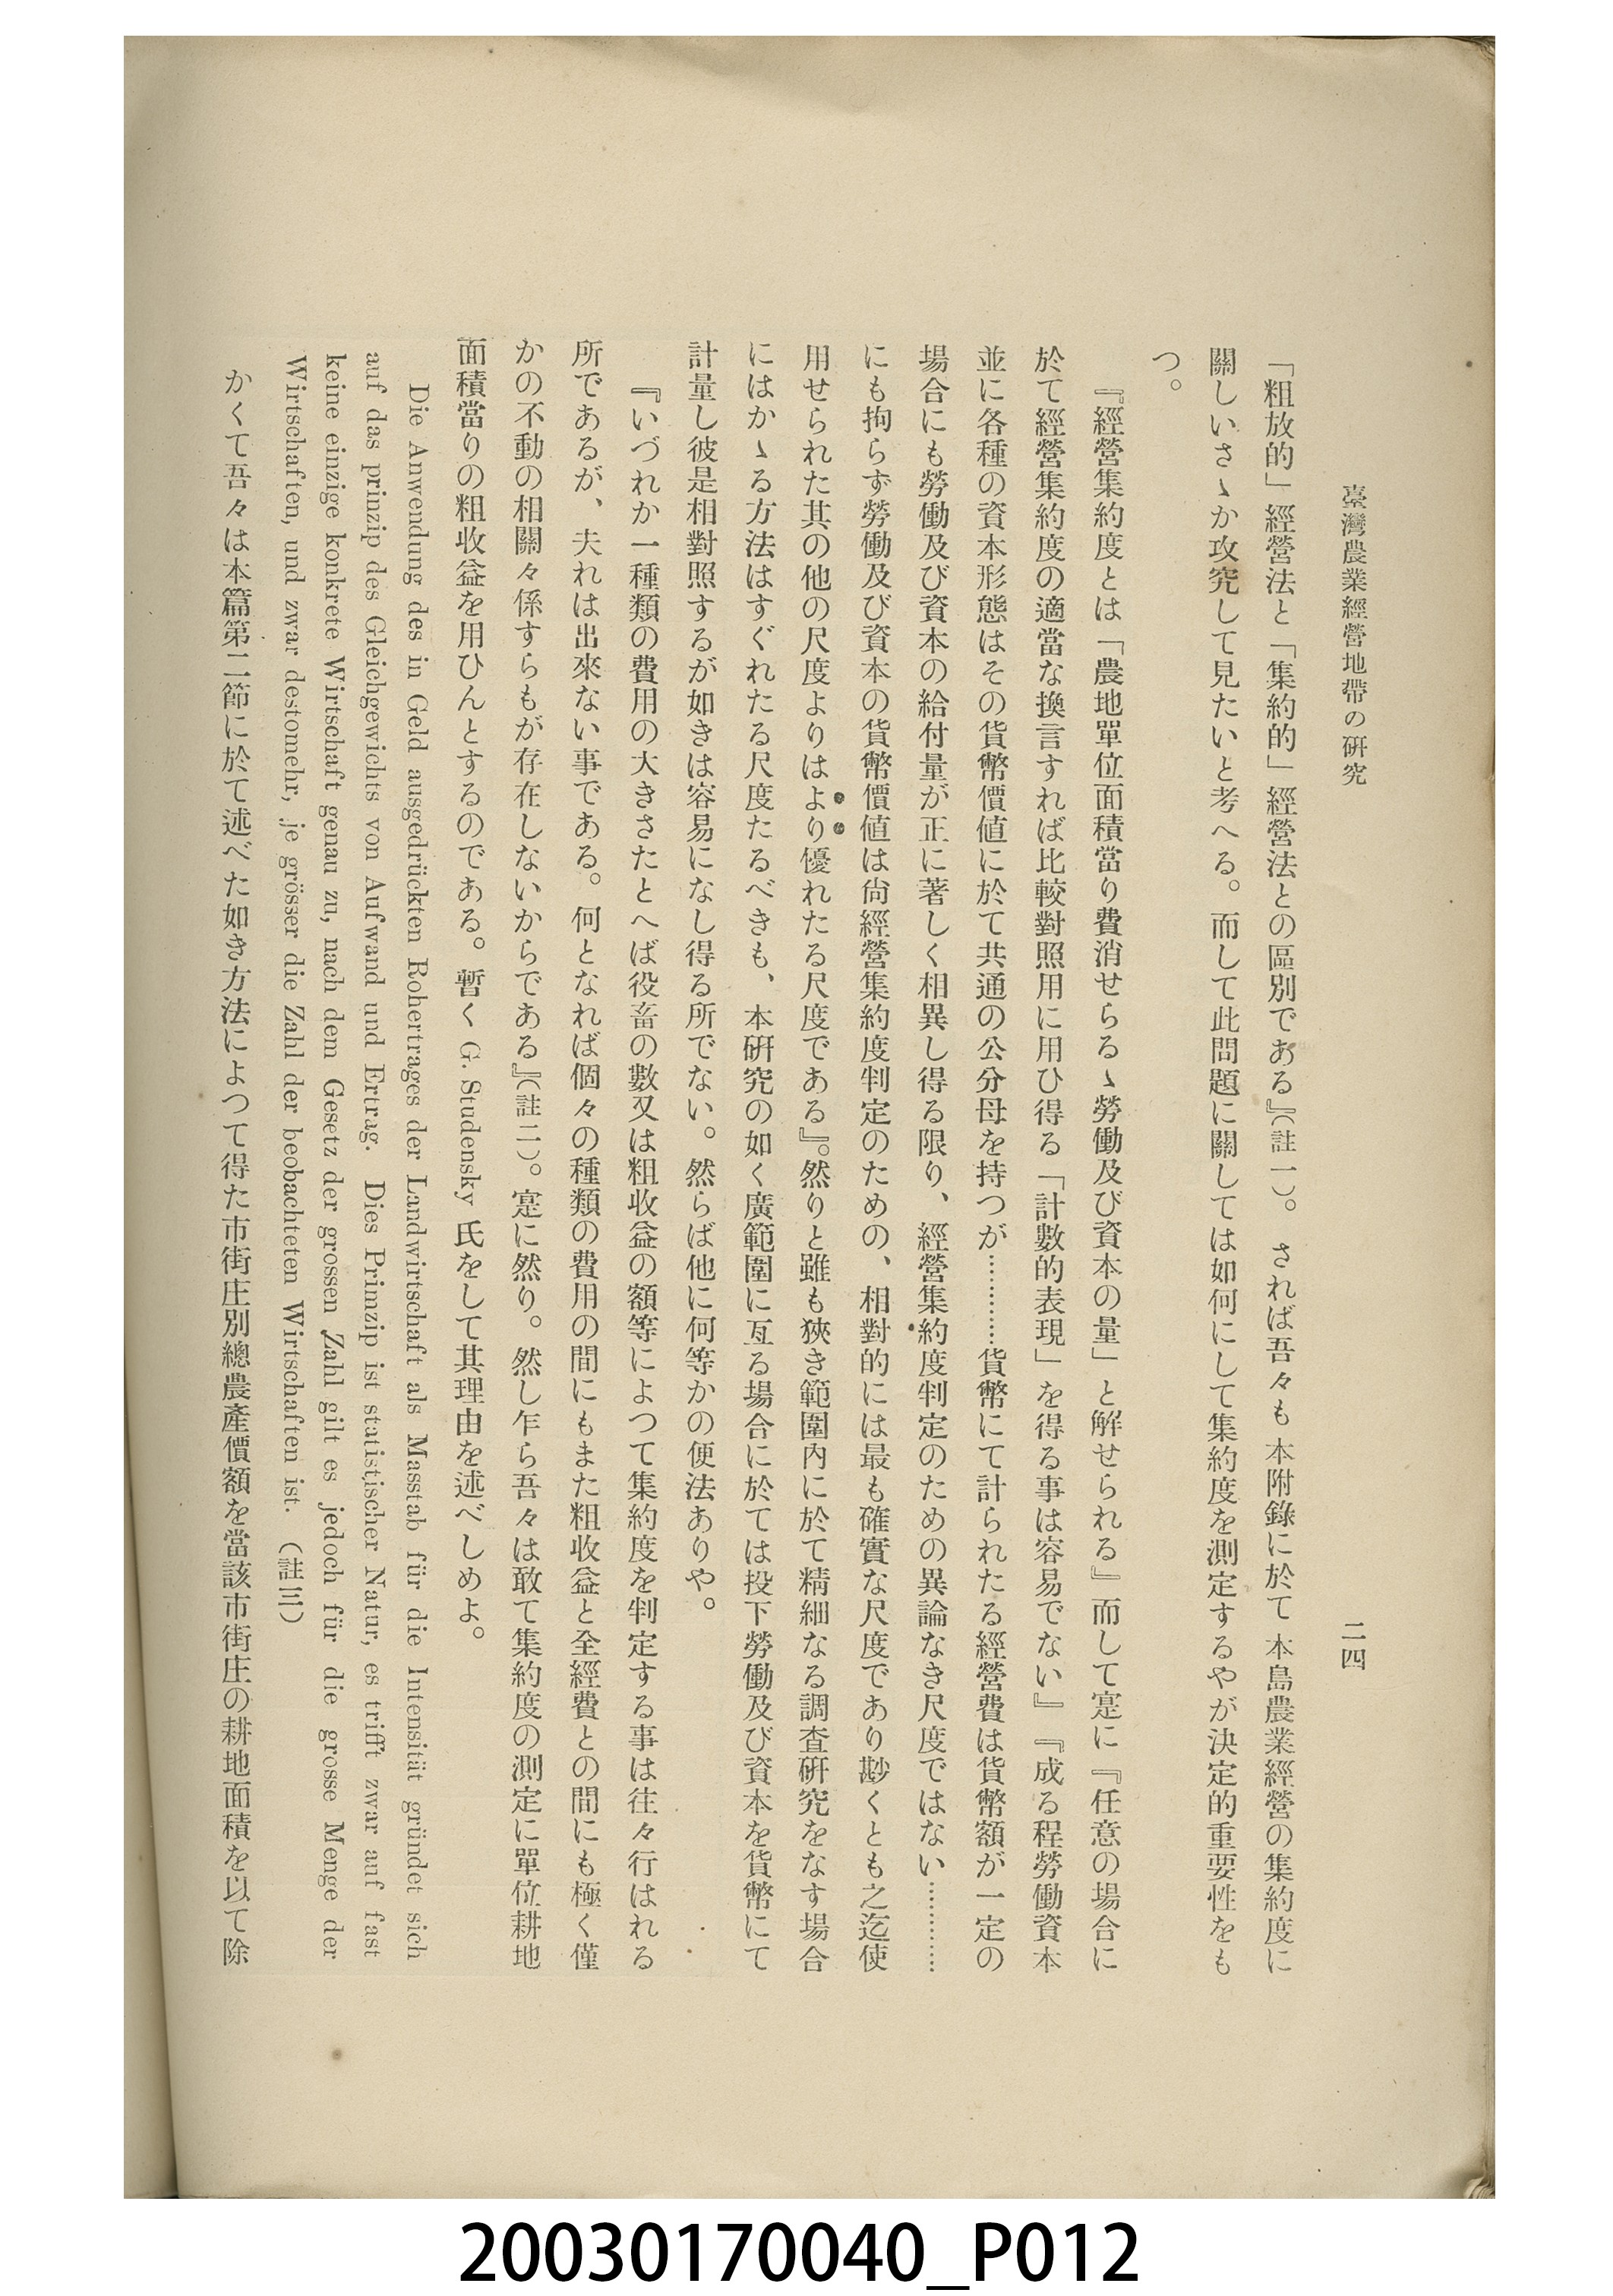 臺灣農業經營地帶の硏究
二四
「粗放的」經營法と「集約的」經營法との區別である』(註一)。されば吾々も本附錄に於て本島農業經營の集約度に
關しいさゝか攻究して見たいと考へる。而して此問題に關しては如何にして集約度を測定するやが決定的重要性をも
つ。
『經營集約度とは「農地單位面積當り費消せらるゝ勞働及び資本の量」と解せられる』而して寔に『任意の場合に
於て經營集約度の適當な換言すれば比較對照用に用ひ得る「計數的表現」を得る事は容易でない』『成る程勞働資本
並に各種の資本形態はその貨幣價値に於て共通の公分母を持つが…………貨幣にて計られたる經營費は貨幣額が一定の
場合にも勞働及び資本の給付量が正に著しく相異し得る限り、經營集約度判定のための異論なき尺度ではない…………
にも拘らず勞働及び資本の貨幣價値は尙經營集約度判定のための、相對的には最も確實な尺度であり尠くとも之迄使
用せられた其の他の尺度よりはより優れたる尺度である』。然りと雖も狹き範圍內に於て精細なる調查硏究をなす場合
にはかゝる方法はすぐれたる尺度たるべきも、本硏究の如く廣範圍に亙る場合に於ては投下勞働及び資本を貨幣にて
計量し彼是相對照するが如きは容易になし得る所でない。然らば他に何等かの便法ありや。
『いづれか一種類の費用の大きさたとへば役畜の數又は粗收益の額等によつて集約度を判定する事は往々行はれる
所であるが、夫れは出來ない事である。何となれば個々の種類の費用の間にもまた粗收益と全經費との間にも極く僅
かの不動の相關々係すらもが存在しないからである』(註二)。寔に然り。然し乍ら吾々は敢て集約度の測定に單位耕地
面積當りの粗收益を用ひんとするのである。暫く G. Studensky 氏をして其理由を述べしめよ。
Die Anwendung des in Geld ausgedrückten Rohertrages der Landwirtschaft als Masstab für die Intensität gründet sich
auf das prinzip des Gleichgewichts von Aufwand und Ertrag. Dies Primzip ist statistischer Natur, es trifft zwar auf fast
keine einzige konkrete Wirtschaft genau zu, nach dem Gesetz der grossen Zahl gilt es jedoch für die grosse Menge der
Wirtschaften, und zwar destomehr, je grösser die Zahl der beobachteten Wirtschaften ist. (註三)
かくて吾々は本篇第二節に於て述べた如き方法によつて得た市街庄別總農產價額を當該市街庄の耕地面積を以て除
20030170040_P012